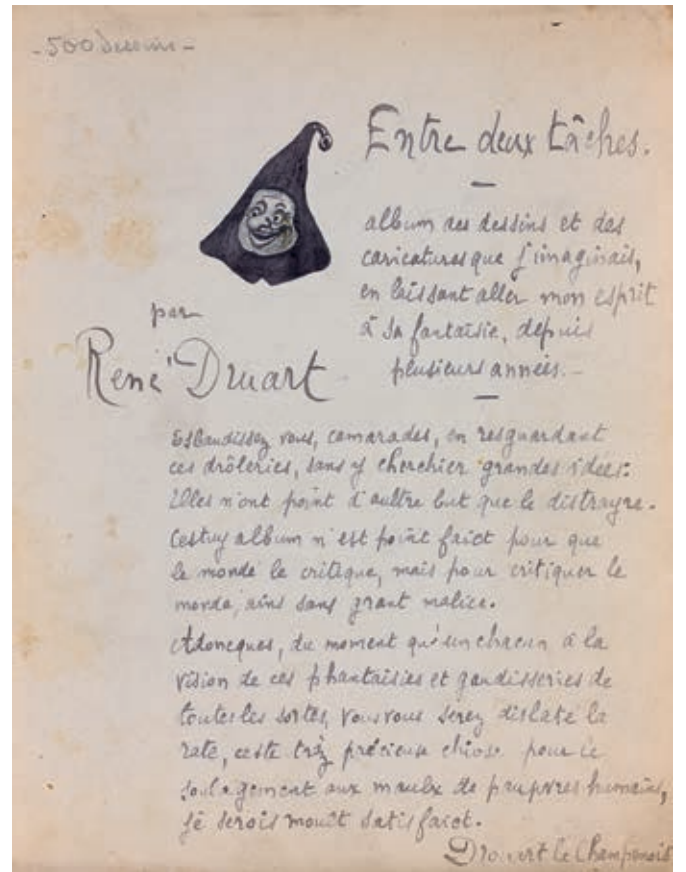 - 500 dessins -
Entre deux tâches.
album des dessins et des
caricatures que j'imaginais,
en laissant aller mon esprit
à sa fantaisie, depuis
plusieurs années. -
par
René Druart
Esbaudissez vous, camarades, en resguardant
ces drôleries, sans y cherchier grandes idées:
Elles n'ont point d'aultre but que le distrayre.
Cestuy album n'est point faict pour que
le monde le critique, mais pour critiquer le
monde, ains sans grant malice.
Adoncques, du moment qu'un chacun à la
vision de ces phantaisies et gaudisseries de
toutes les sortes, vous vous serez dislaté la
rate, ceste très précieuse chiose pour le
soulagement aux maulx de paupvres humains,
je serois moult satisfaict.
le Champenois